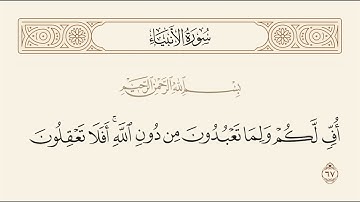 سُورَةُ الأَنْبِيَاءِ
بِسْمِ اللَّهِ الرَّحْمَٰنِ الرَّحِيمِ
أُفٍّ لَّكُمْ وَلِمَا تَعْبُدُونَ مِن دُونِ اللَّهِ ۖ أَفَلَا تَعْقِلُونَ
٦٧